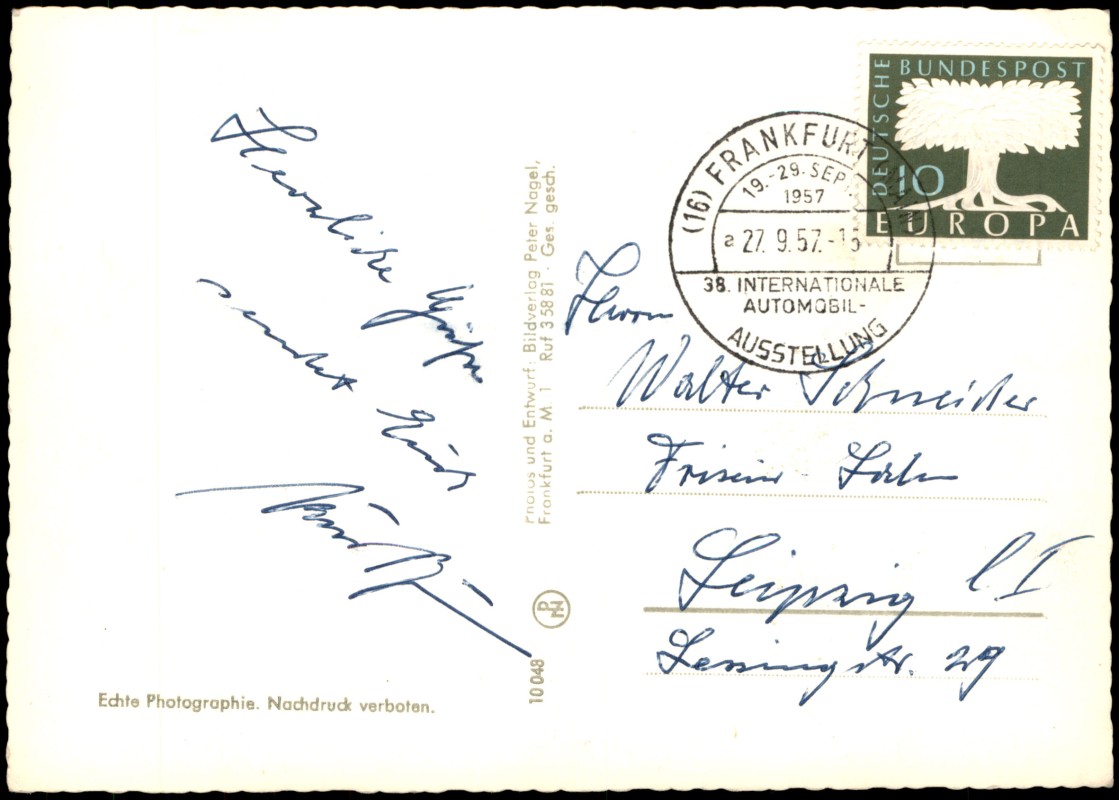 Herzliche Grüße
sendet Euch
Photos und Entwurf: Bildverlag Peter Nagel,
Frankfurt a. M. 1 Ruf 3 58 81 · Ges. gesch.
10 048
Echte Photographie. Nachdruck verboten.
DEUTSCHE BUNDESPOST
10
EUROPA
(16) FRANKFURT (MAIN)
19.-29. SEPT.
1957
a 27. 9. 57.-16
38. INTERNATIONALE
AUTOMOBIL-
AUSSTELLUNG
Herrn
Walter Schneider
Friseur-Salon
Leipzig C I
Lessingstr. 29